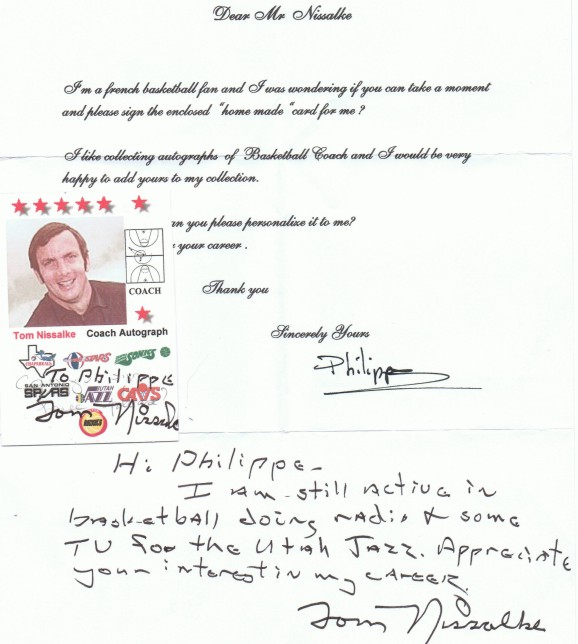 Dear Mr Nissalke
I'm a french basketball fan and I was wondering if you can take a moment
and please sign the enclosed "home made "card for me ?
I like collecting autographs of Basketball Coach and I would be very
happy to add yours to my collection.
an you please personalize it to me?
your career .
Thank you
Sincerely Yours
Philippe
COACH
Tom Nissalke Coach Autograph
CHAPARRALS
STARS
SONICS
To Philippe
SAN ANTONIO
SPURS
UTAH
JAZZ
CAVS
Tom Nissalke
ROCKETS
Hi Philippe-
I am still active in
basketball doing radio & some
TV for the Utah Jazz. Appreciate
your interest in my career.
Tom Nissalke